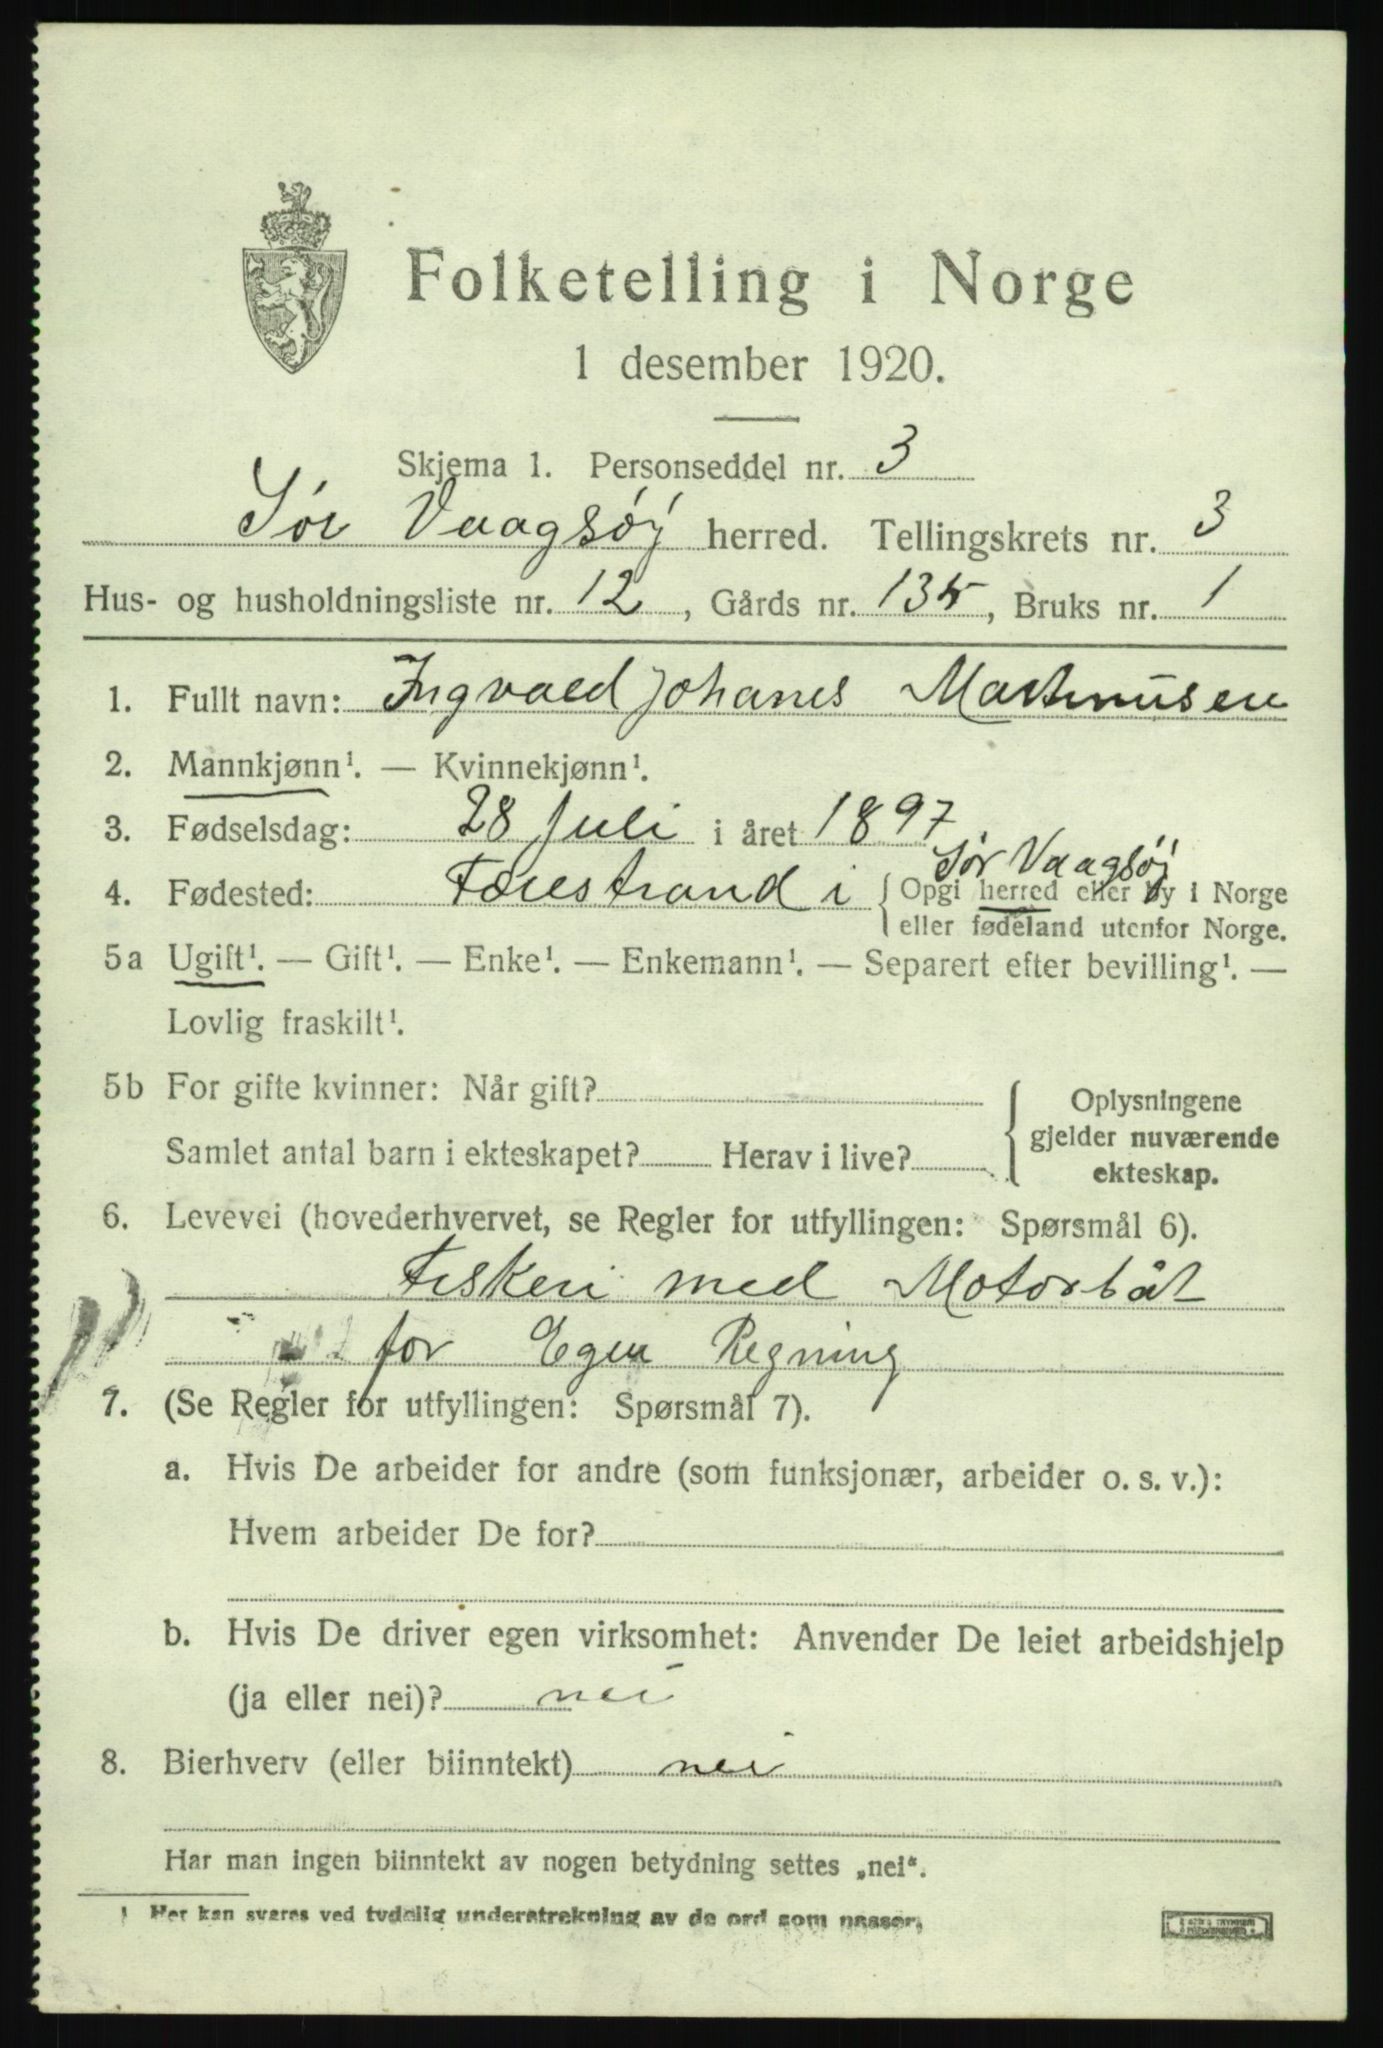 Folketelling i Norge
1 desember 1920.
Skjema 1. Personseddel nr. 3
Sör Vaagsöy herred. Tellingskrets nr. 3
Hus- og husholdningsliste nr. 12, Gårds nr. 135, Bruks nr. 1
1. Fullt navn: Ingvald Johanes Martinusen
2. Mannkjønn¹. — Kvinnekjønn¹.
3. Fødselsdag: 28 Juli i året 1897
Sör Vaagsöy
4. Fødested: Færestrand i { Opgi herred eller by i Norge
eller fødeland utenfor Norge.
5a Ugift¹. — Gift¹. — Enke¹. — Enkemann¹. — Separert efter bevilling¹. —
Lovlig fraskilt¹.
5b For gifte kvinner: Når gift?
Samlet antal barn i ekteskapet? Herav i live?
Oplysningene
gjelder nuværende
ekteskap.
6. Levevei (hovederhvervet, se Regler for utfyllingen: Spørsmål 6).
Fiskeri med Motorbåt
for Egen Regning
7. (Se Regler for utfyllingen: Spørsmål 7).
a. Hvis De arbeider for andre (som funksjonær, arbeider o. s. v.):
Hvem arbeider De for?
b. Hvis De driver egen virksomhet: Anvender De leiet arbeidshjelp
(ja eller nei)? nei
8. Bierhverv (eller biinntekt) nei
Har man ingen biinntekt av nogen betydning settes „nei“.
¹ Her kan svares ved tydelig understrekning av de ord som passer.